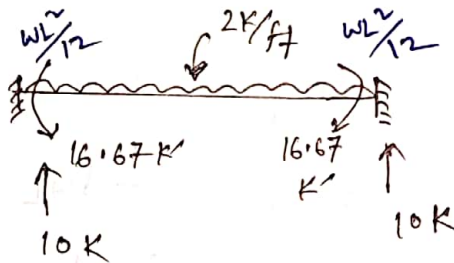 WL²/12
2K/ft
WL²/12
16.67 K'
16.67
K'
10 K
10 K